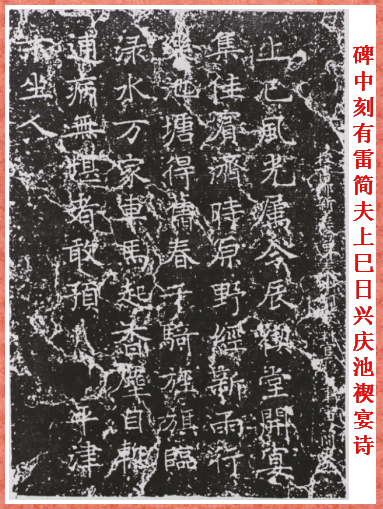 碑中刻有雷简夫上巳日兴庆池禊宴诗
上巳風光屬今辰禊堂開宴
集佳賓濟時原野經新雨行
池塘得舊春千騎旌旗臨
渌水万家車馬起香塵自慚
病無堪者敢預平津
坐人